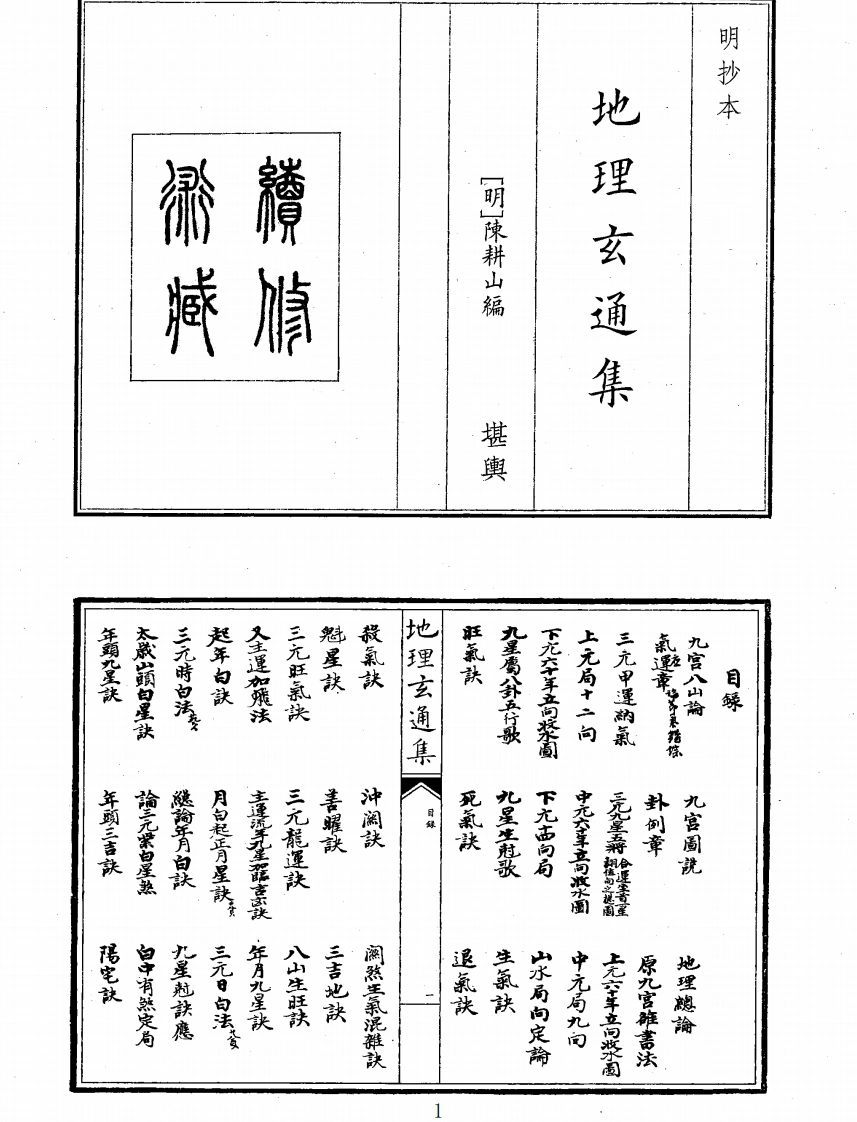 明抄本
地理玄通集
[明]陳耕山編　堪輿
續修
術藏
目録
九宮八山論　九宮圖説　地理總論
氣運章　卦例章　原九宮雒書法
三元甲運納氣　三元九星五將　上元六十年立向收水圖
上元局十二向　中元六十年立向收水圖　中元局九向
下元六十年立向收水圖　下元西向局　山水局向定論
九星屬八卦五行歌　九星生尅歌　生氣訣
旺氣訣　死氣訣　退氣訣
地理玄通集
目録
一
殺氣訣　沖関訣　関煞生氣混雜訣
魁星訣　善曜訣　三吉地訣
三元旺氣訣　三元龍運訣　八山生旺訣
又主運加飛法　主運流年九星加臨吉凶訣　年月九星訣
起年白訣　月白起正月星訣　三元日白法
三元時白法　總論年月白訣　九星尅訣應
太歲山頭白星訣　論三元紫白星煞　白中有煞定局
年頭九星訣　年頭三吉訣　陽宅訣
1